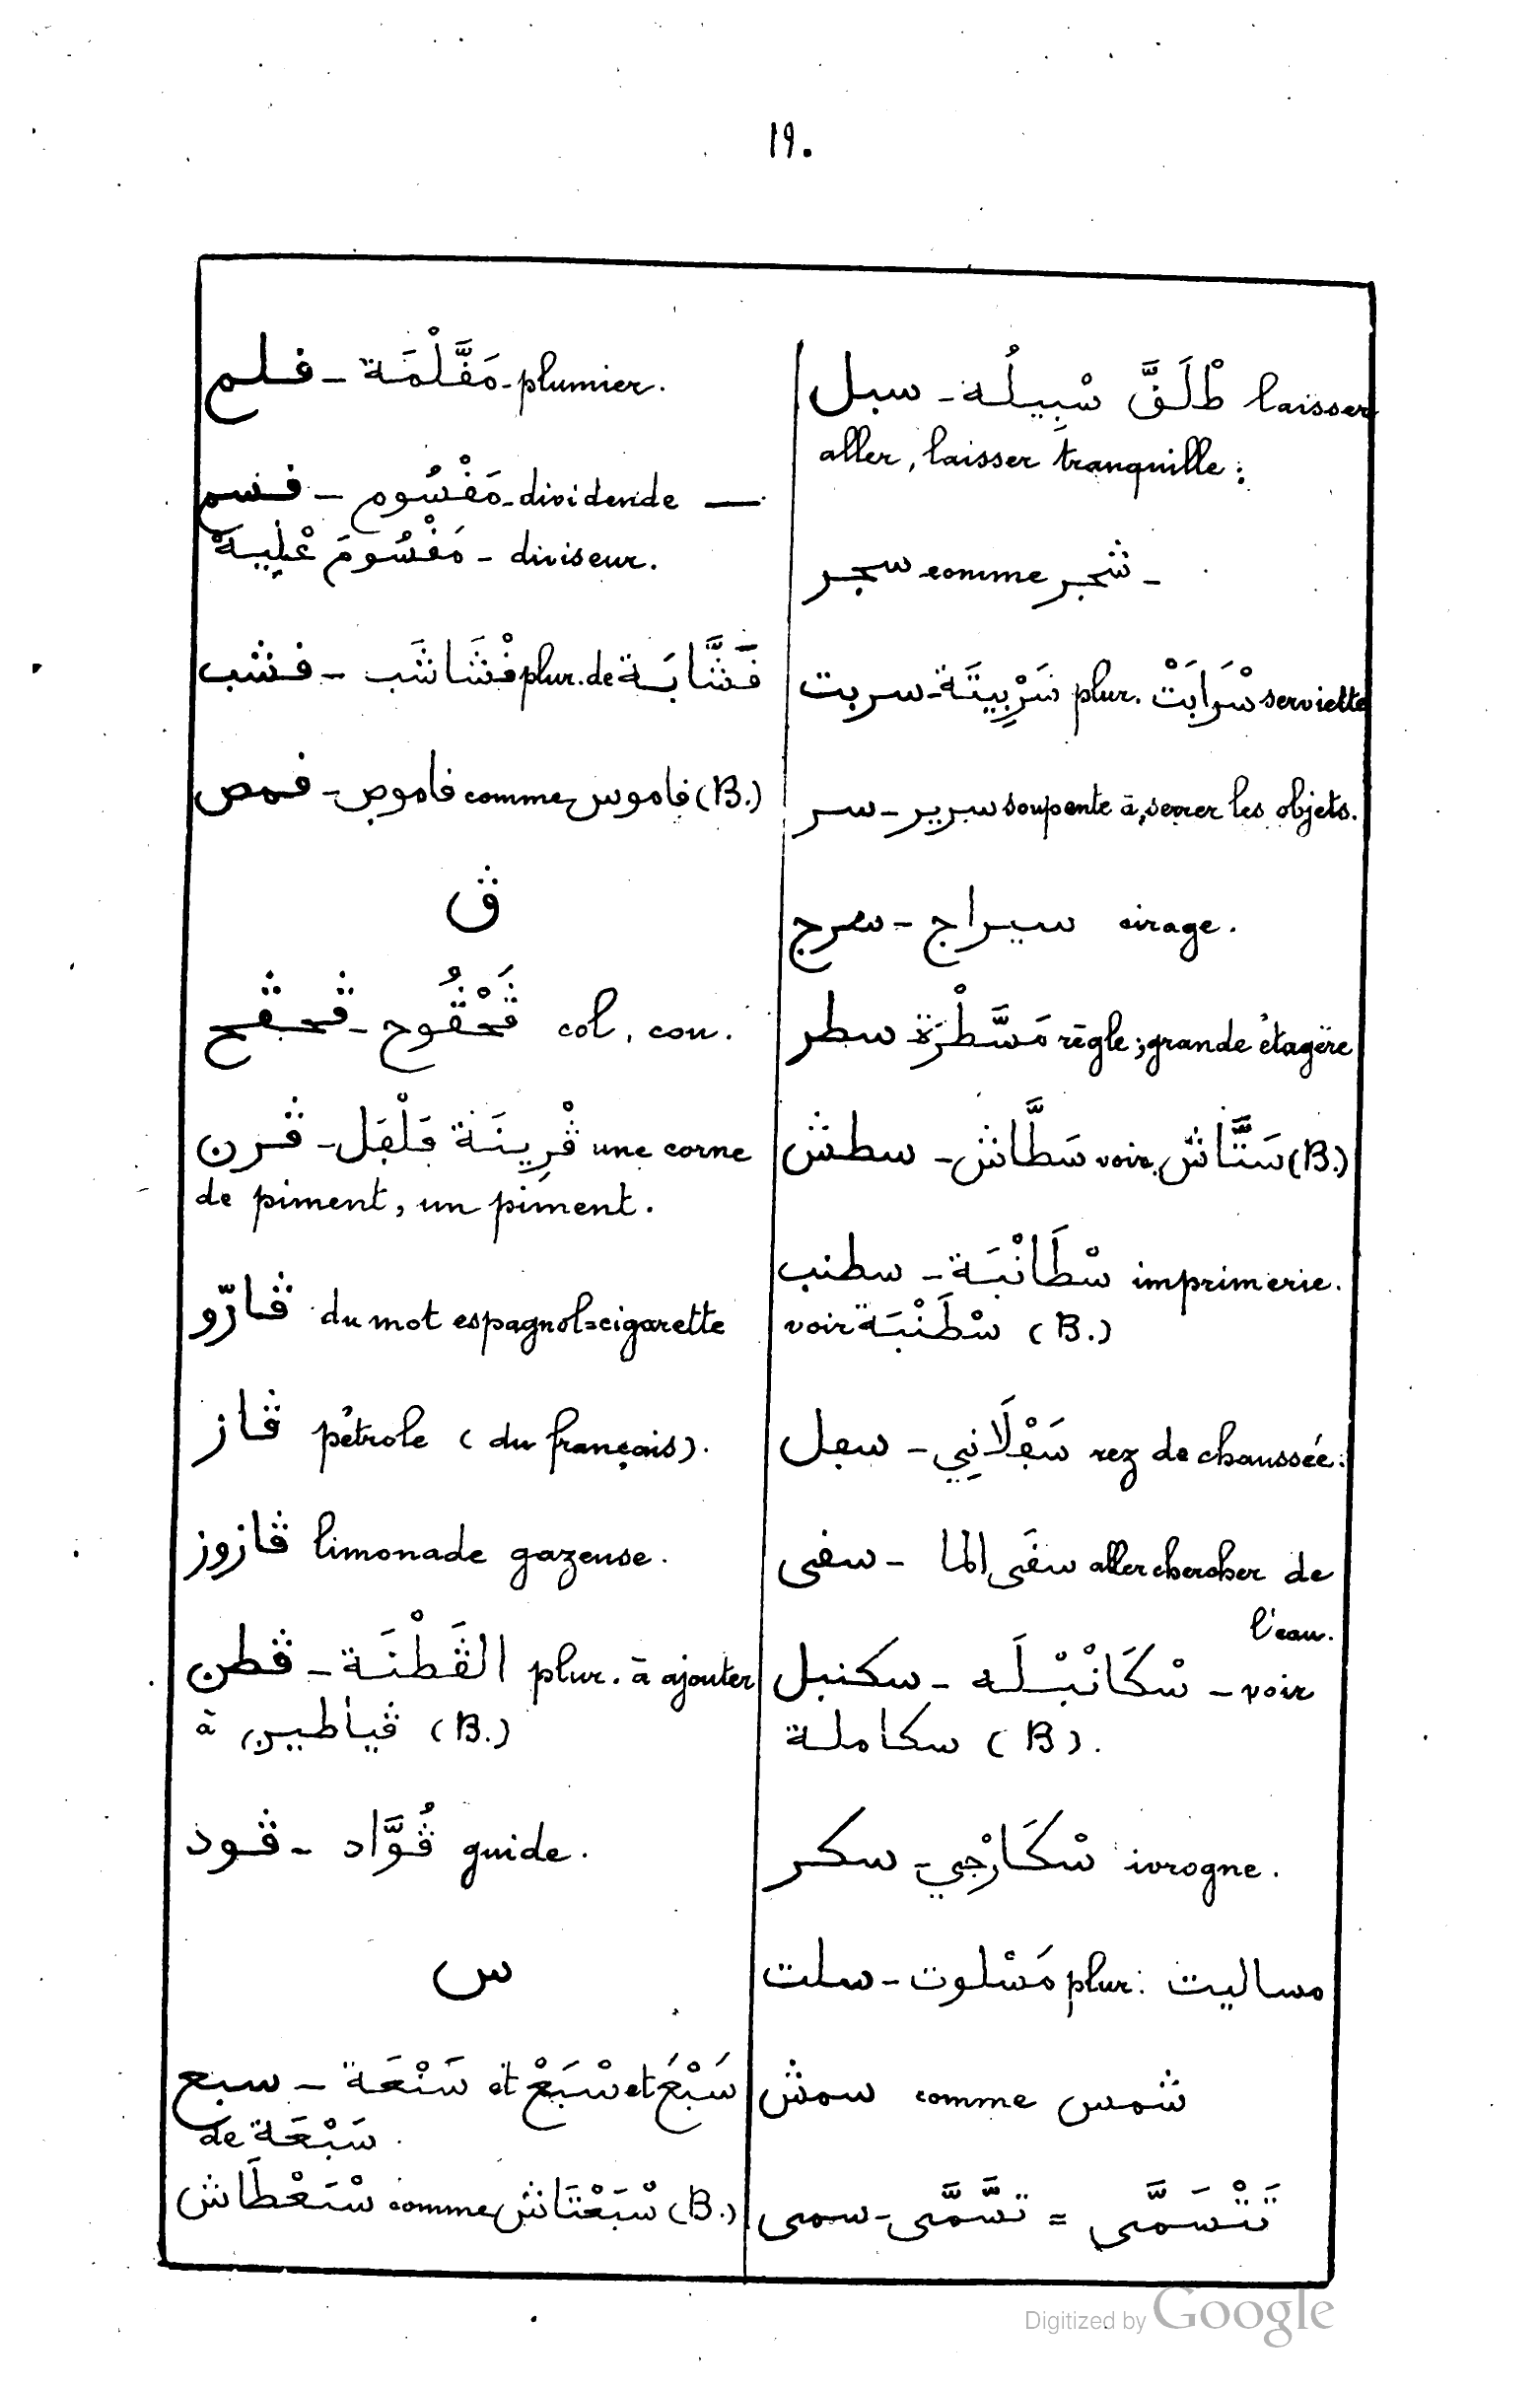 19.
فلم - مَفَّلْمَة - plumier.
فسم - مَفْسُوم - dividende —
مَفْسُومَ عْلِيهْ - diviseur.
فشب - فْشَاشَب plur. de فَشَّابَة
فمص - فاموص comme فاموس (B.)
ڨ
ڨحڨح - ڨَحْڨُوح col, cou.
ڨرن - ڨْرِينَة فَلْفَل une corne
de piment, un piment.
ڨارّو du mot espagnol = cigarette
ڨاز pétrole (du français).
ڨازوز limonade gazeuse.
ڨطن - الڨَطْنَة plur. à ajouter
à ڨياطين (B.)
ڨود - ڨُوَّاد guide.
س
سبع - سَبْعَة et سْبَعْ et سَبْعَ
de سَبْعَة.
سْبَعْطَاش comme سْبَعْتَاش (B.)
سبل - طْلَفَّ سْبِيلُه laisser
aller, laisser tranquille:
سجر comme شجر -
سربت - سَرْبِيتَة plur. سْرَابَتْ serviette
سر - سرير soupente à serrer les objets.
سرج - سيراج cirage.
سطر مَسَّطْرَة règle; grande étagère
سطش - سَطَّاش voir سَتَّاش (B.)
سطنب - سْطَانْبَة imprimerie.
voir سْطَنْبَة (B.)
سفل - سَفْلَانِي rez de chaussée:
سفى - سفَى الما aller chercher de
l'eau.
سكنبل - سْكَانْبْلَه - voir
سكاملة (B).
سكر - سْكَارْجِي ivrogne.
سلت - مَسْلوت plur: مساليت
سمش comme شمس
سمى - تسَّمَّى = تَتْسَمَّى
Digitized by Google